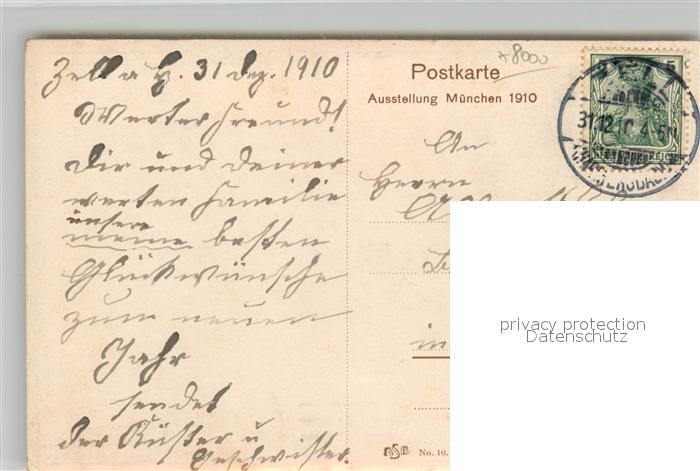 Zell a H. 31 Dez. 1910
Werter Freund!
Dir und deiner
werten Familie
unsere
meine besten
Glückwünsche
zum neuen
Jahr
sendet
der Küster u
Geschwister.
+8000
Postkarte
Ausstellung München 1910
An
Herrn
in
ZELL
31.12.10. 4-5N
No. 10.
privacy protection
Datenschutz